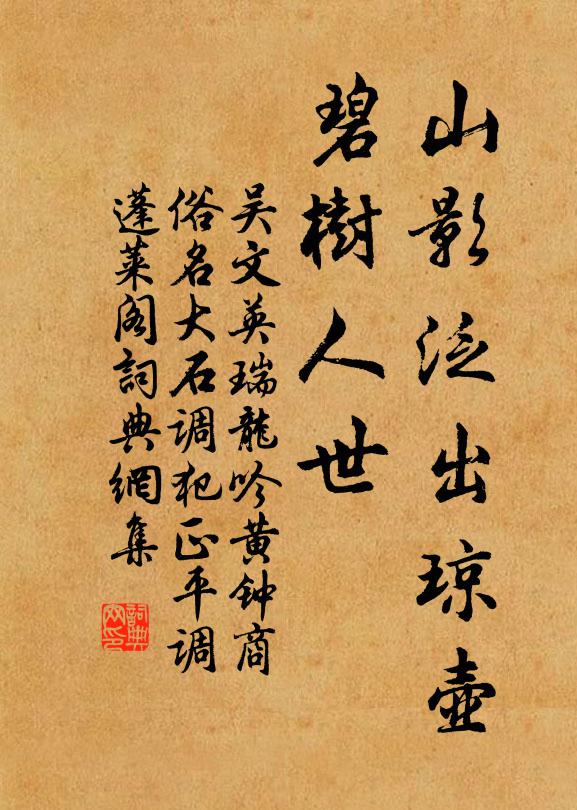 山影泛出琼壶
碧樹人世
吴文英瑞龍吟黄钟商
俗名大石调犯正平调
蓬莱阁詞典網集
詞典
网印